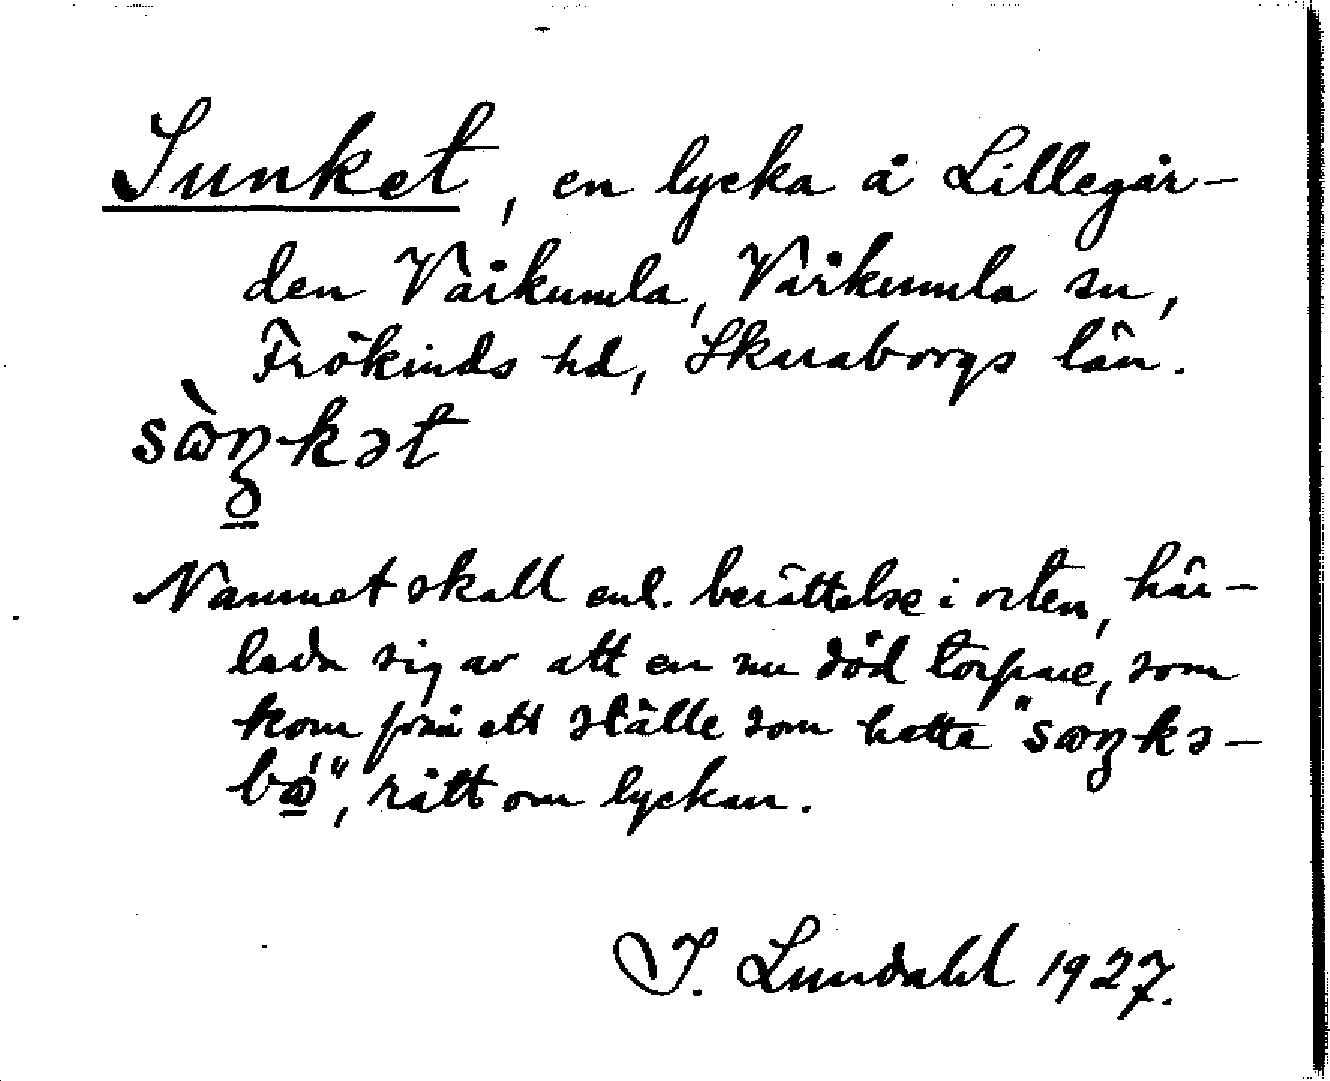 Sunket, en lycka å Lillegår-
den Vårkumla, Vårkumla sn,
Frökinds hd, Skaraborgs län.
sòŋkət
Namnet skall enl. berättelse i orten, här-
leda sig av att en nu död torpare, som
kom från ett ställe som hette "soŋkə-
bó", rått om lyckan.
I. Lundahl 1927.